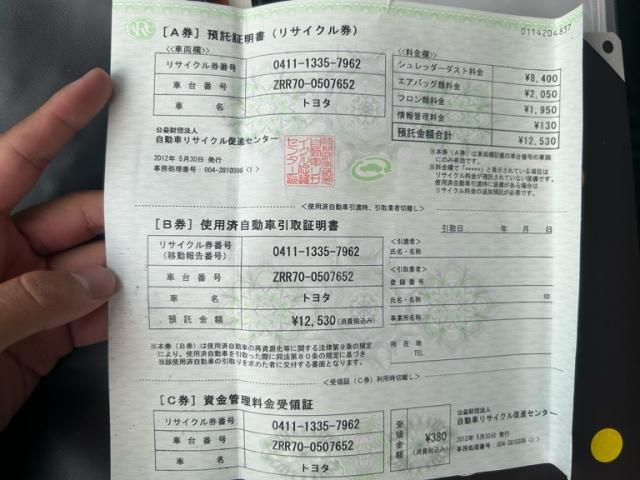 0114204837
[A券] 預託証明書(リサイクル券)
≪車両欄≫
リサイクル券番号 0411-1335-7962
車台番号 ZRR70-0507652
車名 トヨタ
≪料金欄≫
シュレッダーダスト料金 ¥8,400
エアバッグ類料金 ¥2,050
フロン類料金 ¥1,950
情報管理料金 ¥130
預託金額合計 ¥12,530
公益財団法人
自動車リサイクル促進センター
2012年 5月30日 発行
事務処理番号:004-3810398
※本券(A券)は車両欄記載の車台番号の車両
にのみ有効です。
※料金欄で「*****」と表示されている項目は
リサイクル料金が預託されていない装備です。
使用済自動車引渡時に装備がある場合は
リサイクル料金の追加預託が必要です。
<使用済自動車引渡時、引取業者切離し>
[B券] 使用済自動車引取証明書
引取日: 年 月 日
リサイクル券番号
(移動報告番号) 0411-1335-7962
車台番号 ZRR70-0507652
車名 トヨタ
預託金額 ¥12,530 (消費税込み)
<引渡者>
氏名・名称
<引取業者>
登録番号
氏名・名称 印
事業所名称
所在地
TEL
※本券(B券)は使用済自動車の再資源化等に関する法律第9条の規定
により、使用済自動車を引取った際に同法第80条の規定に基づき
当該使用済自動車の引取りを求めた者に交付する書面となります。
<受領証(C券)利用時切離し>
[C券] 資金管理料金受領証
リサイクル券番号 0411-1335-7962
車台番号 ZRR70-0507652
車名 トヨタ
受領金額 ¥380
(消費税込み)
公益財団法人
自動車リサイクル促進センター
2012年 5月30日 発行
事務処理番号:004-3810398